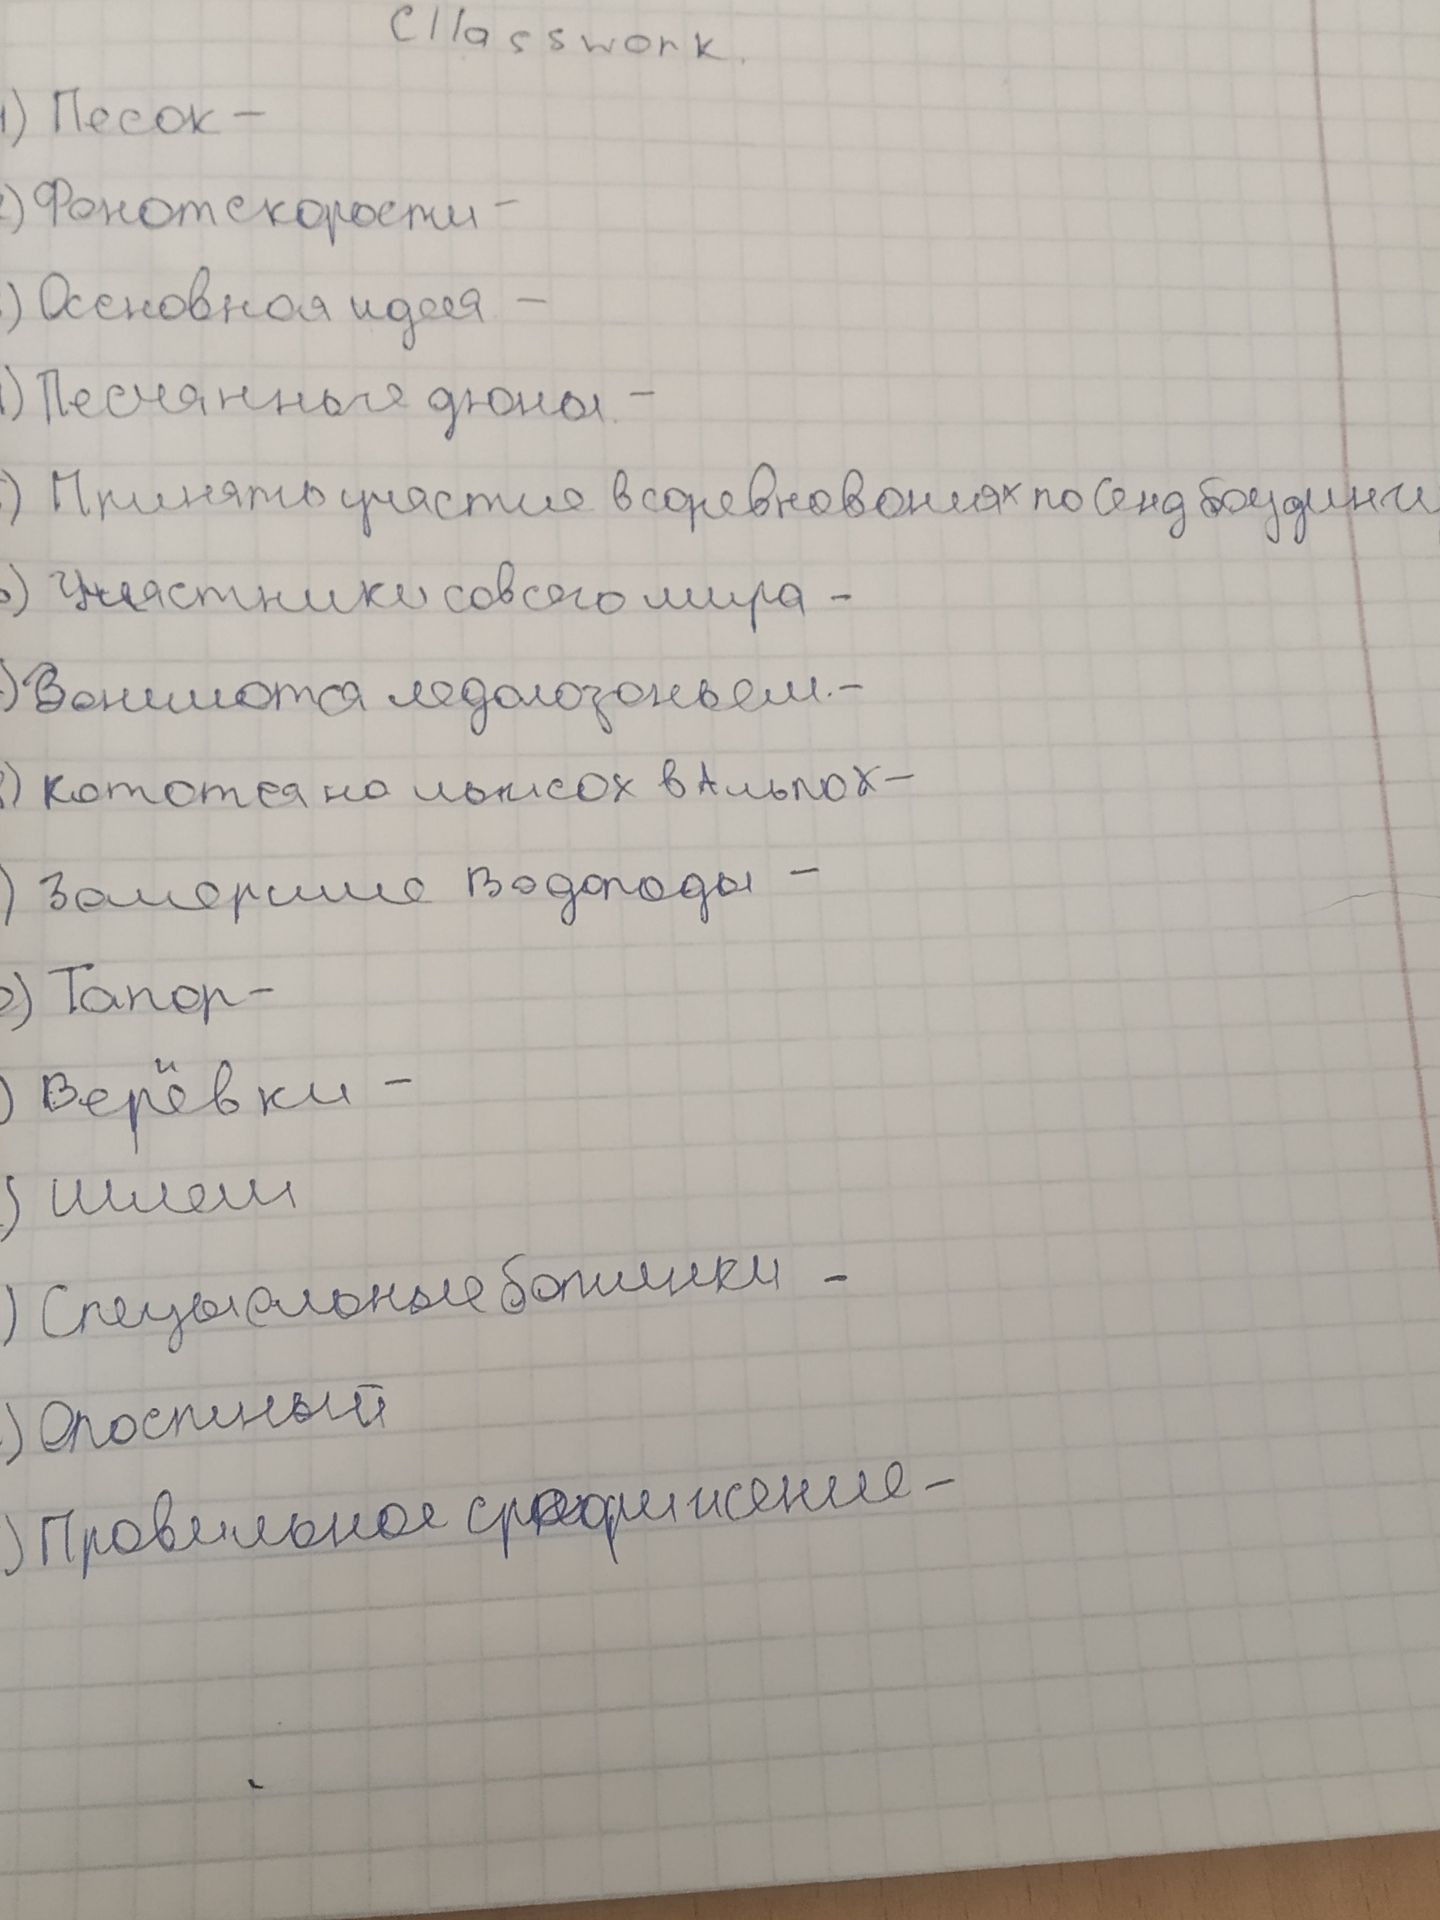 Cllasswork.
1) Песок -
2) Фанат скорости -
) Основная идея -
) Песчянные дюны. -
) Принять участие в соревнованиях по Сендбоудинги
) Участники со всего мира -
) Занимются ледолозаньем. -
) Катотся на лыжсах в Альпах -
) Замершие Водопады -
) Тапор -
) Верёвки -
) Шлем
) Спецыальные ботинки -
) Опостный
) Правильное снаряжение -